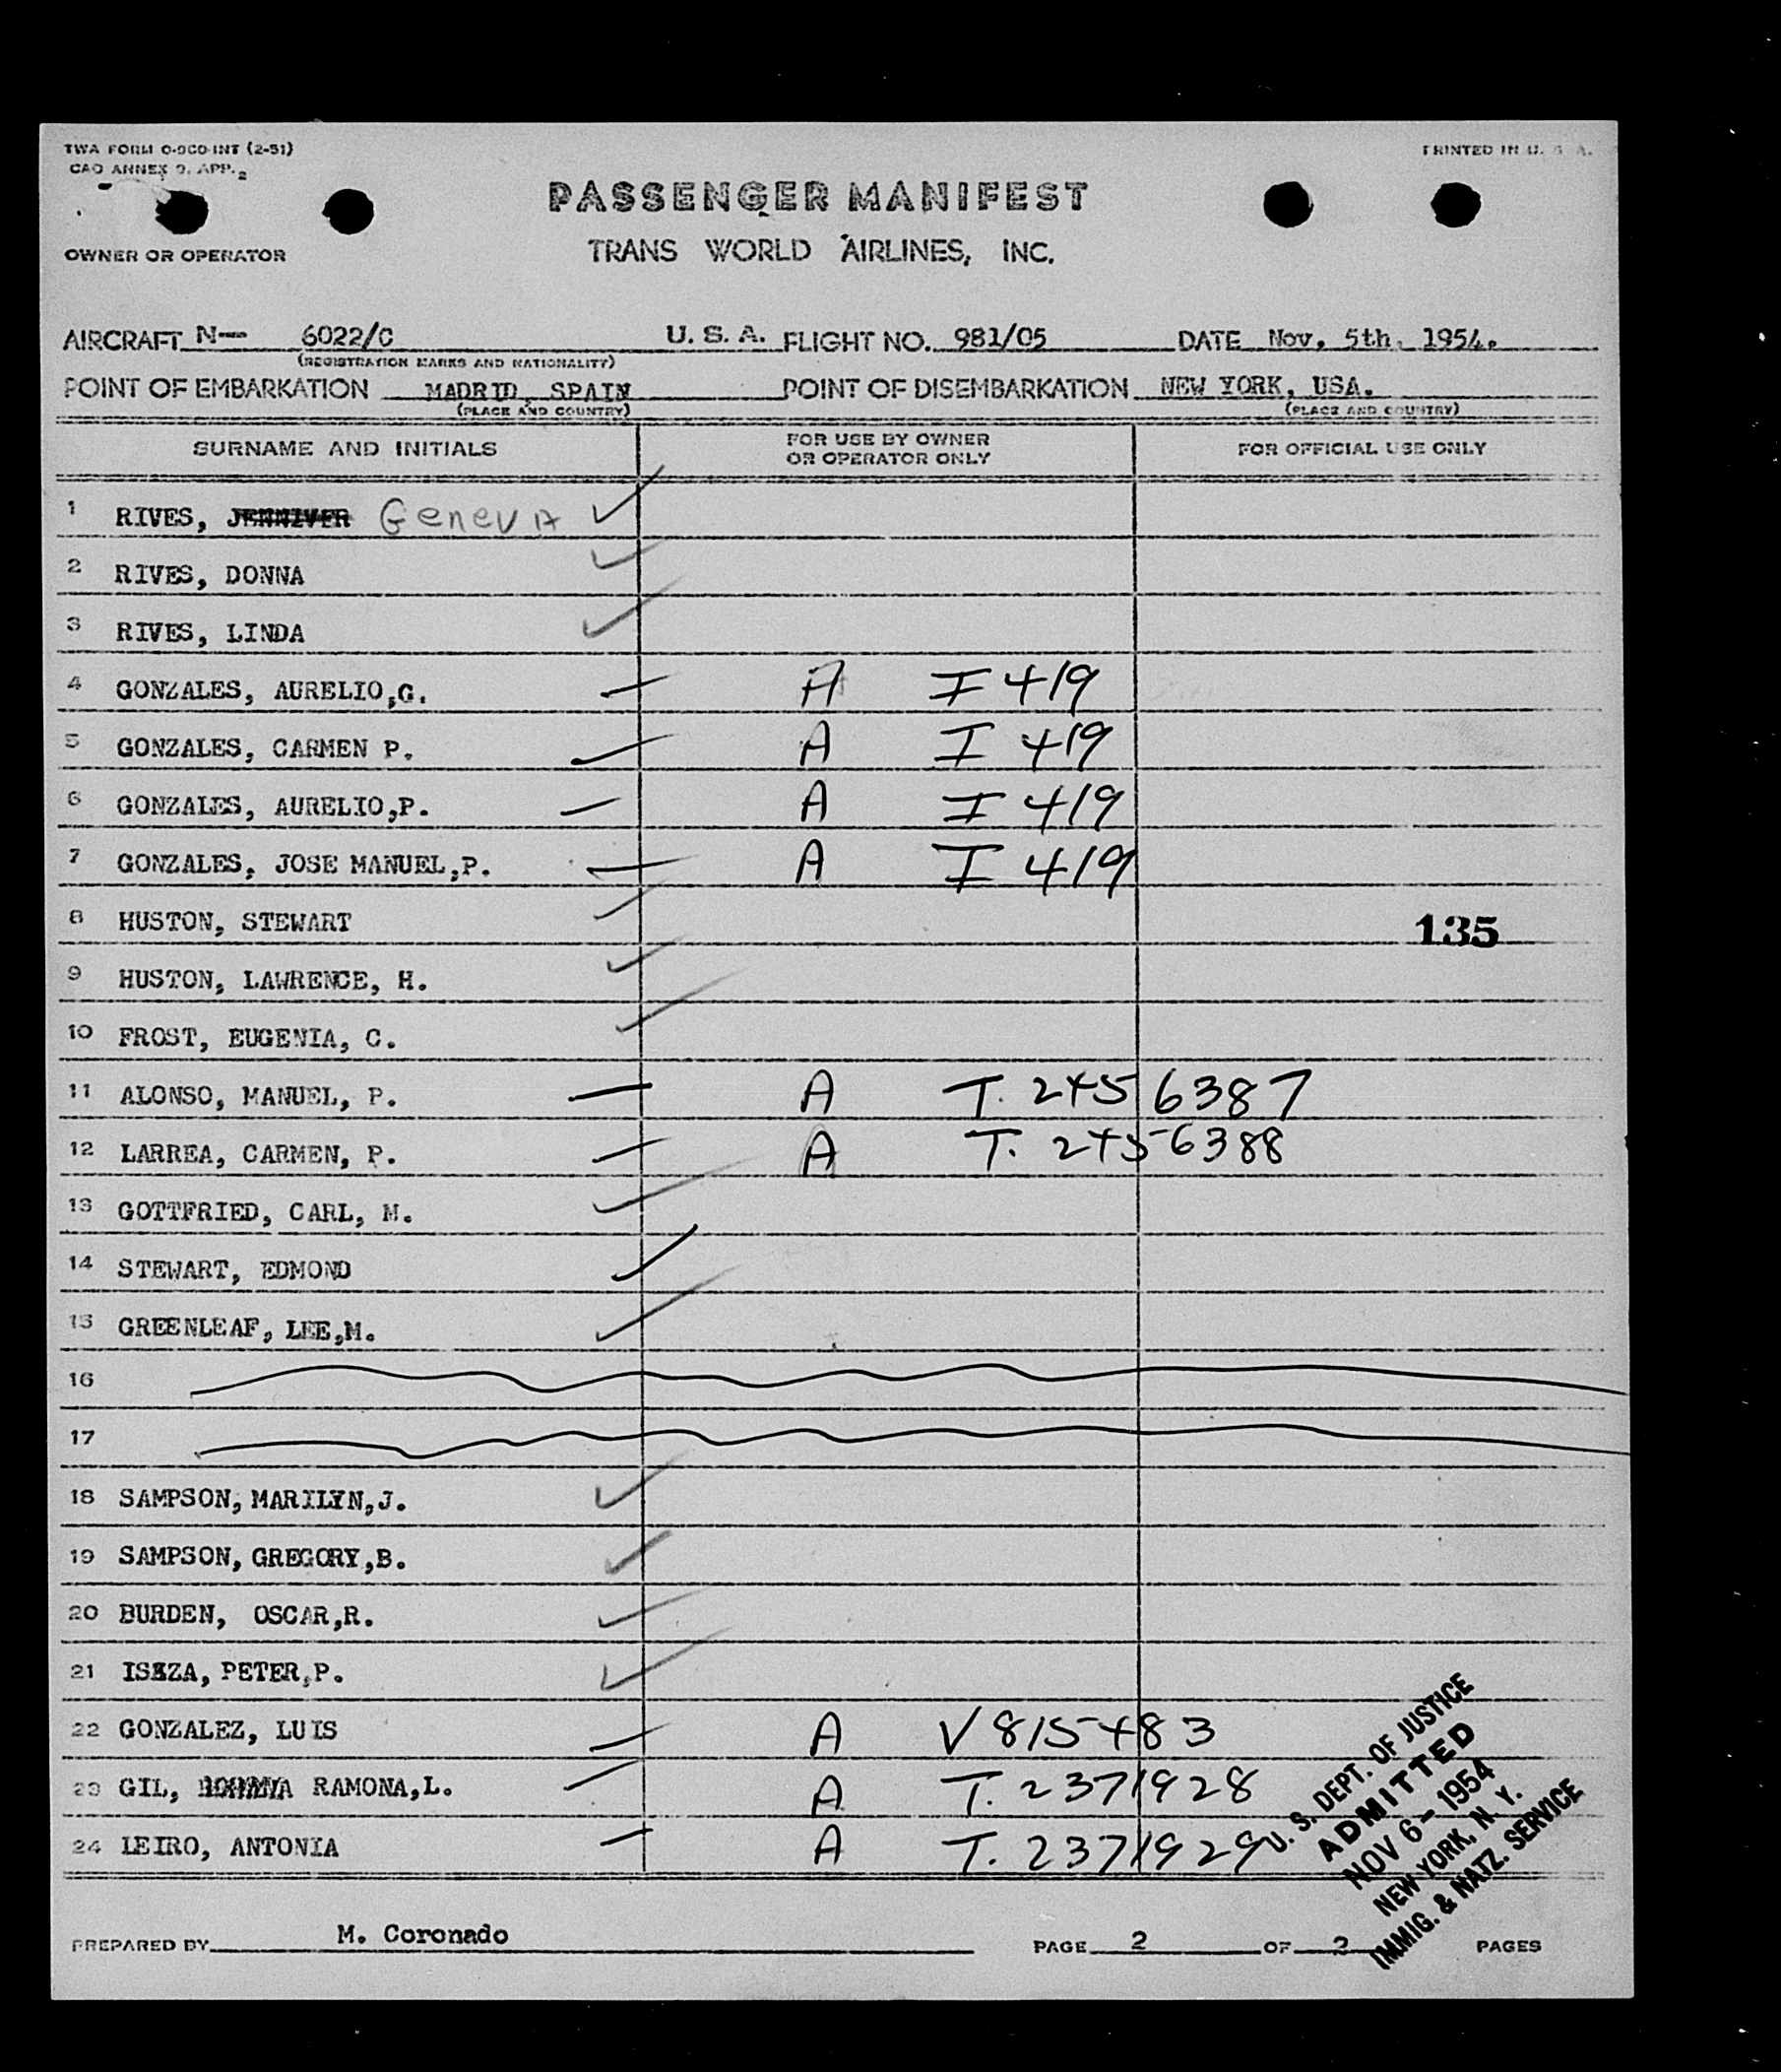 TWA FORM O-9CO-INT (2-51)
PRINTED IN U. S. A.
CAO ANNEX 9. APP. 2
PASSENGER MANIFEST
OWNER OR OPERATOR
TRANS WORLD AIRLINES, INC.
AIRCRAFT N— 6022/C U. S. A. FLIGHT NO. 981/05 DATE Nov. 5th. 1954.
(REGISTRATION MARKS AND NATIONALITY)
POINT OF EMBARKATION MADRID, SPAIN POINT OF DISEMBARKATION NEW YORK, USA.
(PLACE AND COUNTRY) (PLACE AND COUNTRY)
SURNAME AND INITIALS FOR USE BY OWNER OR OPERATOR ONLY FOR OFFICIAL USE ONLY
1 RIVES, JENNIVER Geneva
2 RIVES, DONNA
3 RIVES, LINDA
4 GONZALES, AURELIO,G. A I 419
5 GONZALES, CARMEN P. A I 419
6 GONZALES, AURELIO,P. A I 419
7 GONZALES, JOSE MANUEL,P. A I 419
8 HUSTON, STEWART 135
9 HUSTON, LAWRENCE, H.
10 FROST, EUGENIA, C.
11 ALONSO, MANUEL, P. A T. 2456387
12 LARREA, CARMEN, P. A T. 2456388
13 GOTTFRIED, CARL, M.
14 STEWART, EDMOND
15 GREENLEAF, LEE,M.
16
17
18 SAMPSON, MARILYN,J.
19 SAMPSON, GREGORY,B.
20 BURDEN, OSCAR,R.
21 PETER,P.
22 GONZALEZ, LUIS A V 815483
23 GIL, RAMONA,L. A T. 2371928
24 LEIRO, ANTONIA A T. 2371929
U. S. DEPT. OF JUSTICE
ADMITTED
NOV 6 - 1954
NEW YORK, N. Y.
IMMIG. & NATZ. SERVICE
PREPARED BY M. Coronado PAGE 2 OF 2 PAGES